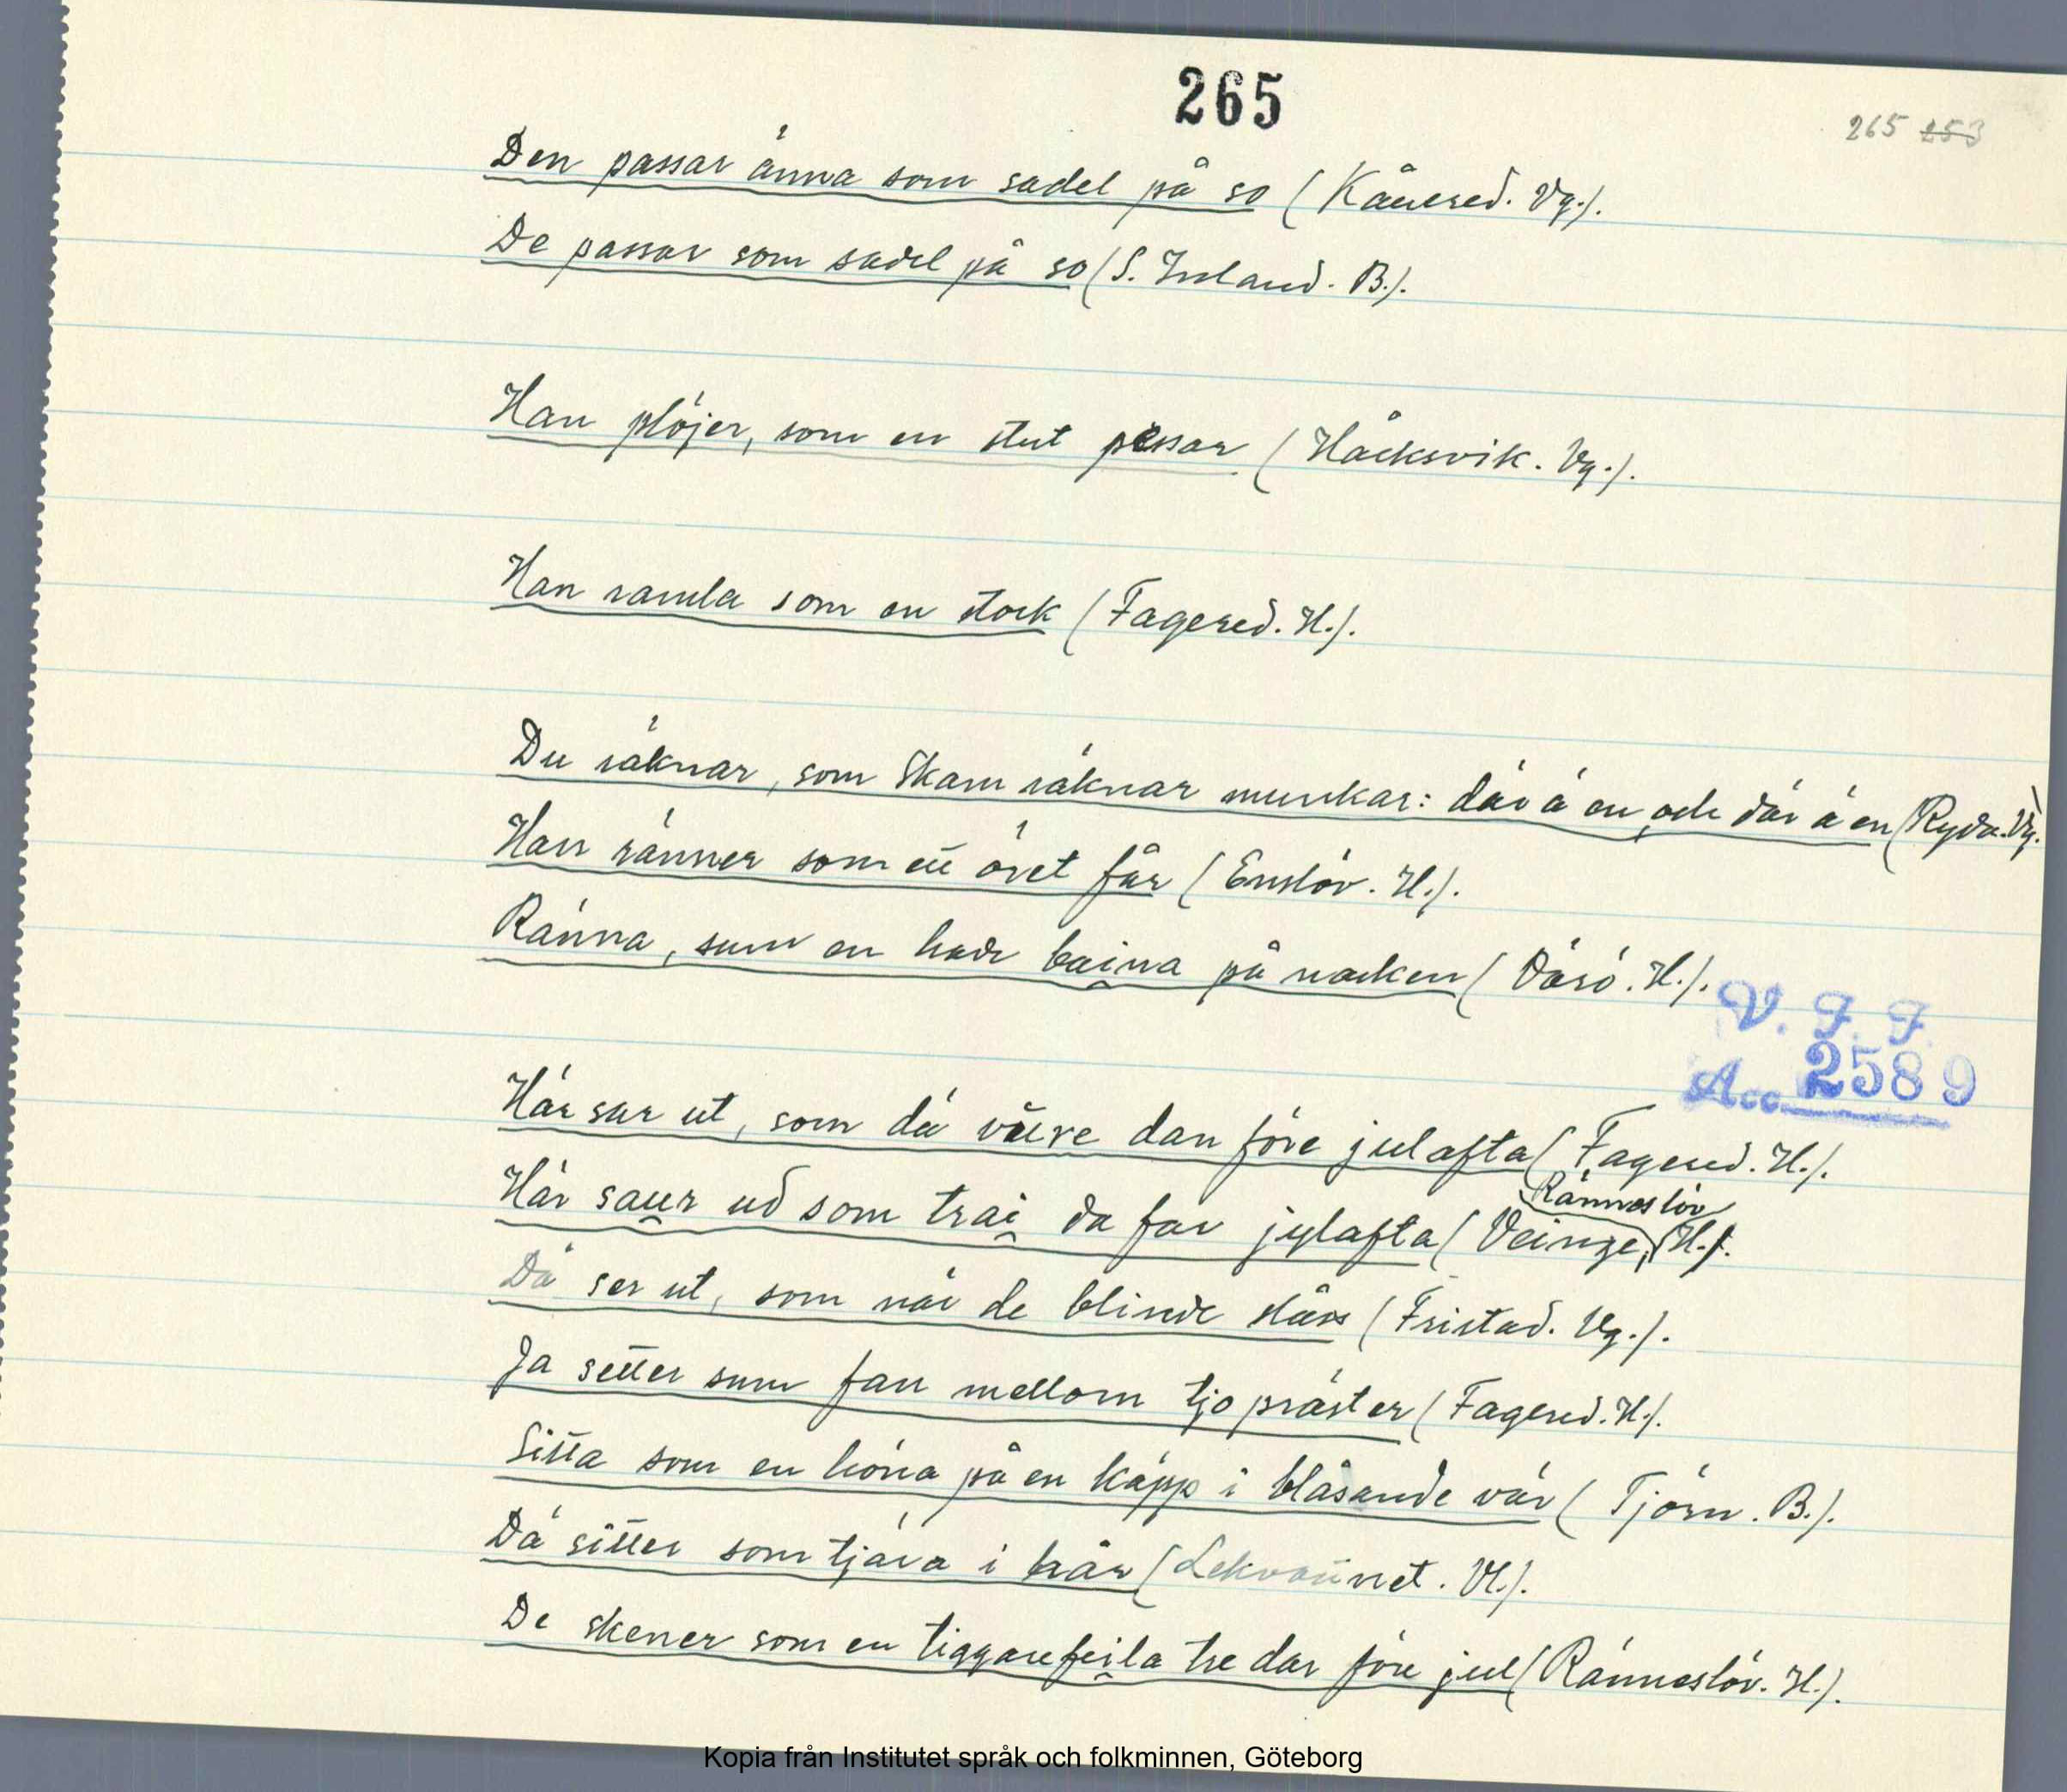 265
265 253
Den passar änna som sadel på so (Kånered. Vg.).
De passar som sadel på so (S. Inland. B.).
Han plöjer, som en stut pessar (Håcksvik. Vg.).
Han ramla som en stock (Fagered. H.).
Du räknar, som Skam räknar munkar: där ä en, och där ä en (Ryda. Vg.)
Han ränner som en öret får (Enslöv. H.).
Ränna, sum en hade baina på nacken (Värö. H.).
V. F. F.
Acc. 2589
Här sur ut, som dä våre dan före julafta (Fagered. H.).
Ränneslöv
Här saur ud som trai da far jylafta (Veinge, H.).
Dä ser ut, som när de blinde slåss (Fristad. Vg.).
Ja setter sum fan mellom tjo präster (Fagered. H.).
Sitta som en höna på en käpp i blåsande vär (Tjörn. B.).
Dä sitter som tjära i hår (Lekvattnet. Vl.).
De skener som en tiggarefeila tre dar före jul (Ränneslöv. H.).
Kopia från Institutet språk och folkminnen, Göteborg